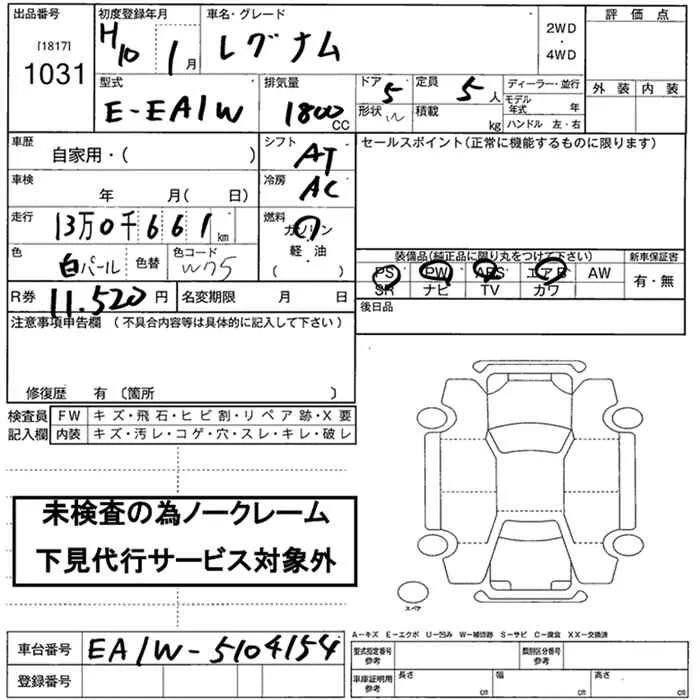 出品番号
[1817]
1031
初度登録年月
H10 1月
車名・グレード
レグナム
2WD
・
4WD
評価点
外装 内装
型式
E-EA1W
排気量
1800
CC
ドア 5
形状 W
定員 5人
積載 kg
ディーラー・並行
モデル年式 年
ハンドル 左・右
車歴
自家用・( )
シフト
AT
セールスポイント(正常に機能するものに限ります)
車検
年 月( 日)
冷房
AC
走行
13万0千661km
燃料
ガソリン
軽・油
( )
色
白パール
色替
色コード
W75
装備品(純正品に限り丸をつけて下さい)
PS PW ABS エアB AW
SR ナビ TV カワ
新車保証書
有・無
R券 11,520円
名変期限 月 日
後日品
注意事項申告欄 (不具合内容等は具体的に記入して下さい)
修復歴 有 〔箇所 〕
検査員
記入欄
FW キズ・飛石・ヒビ割・リペア跡・X要
内装 キズ・汚レ・コゲ・穴・スレ・キレ・破レ
未検査の為ノークレーム
下見代行サービス対象外
スペア
A−キズ E−エクボ U−凹み W−補修跡 S−サビ C−腐食 XX−交換済
車台番号 EA1W-5104154
登録番号
型式指定番号
参考
類別区分番号
参考
車庫証明用
参考
長さ cm
幅 cm
高さ cm